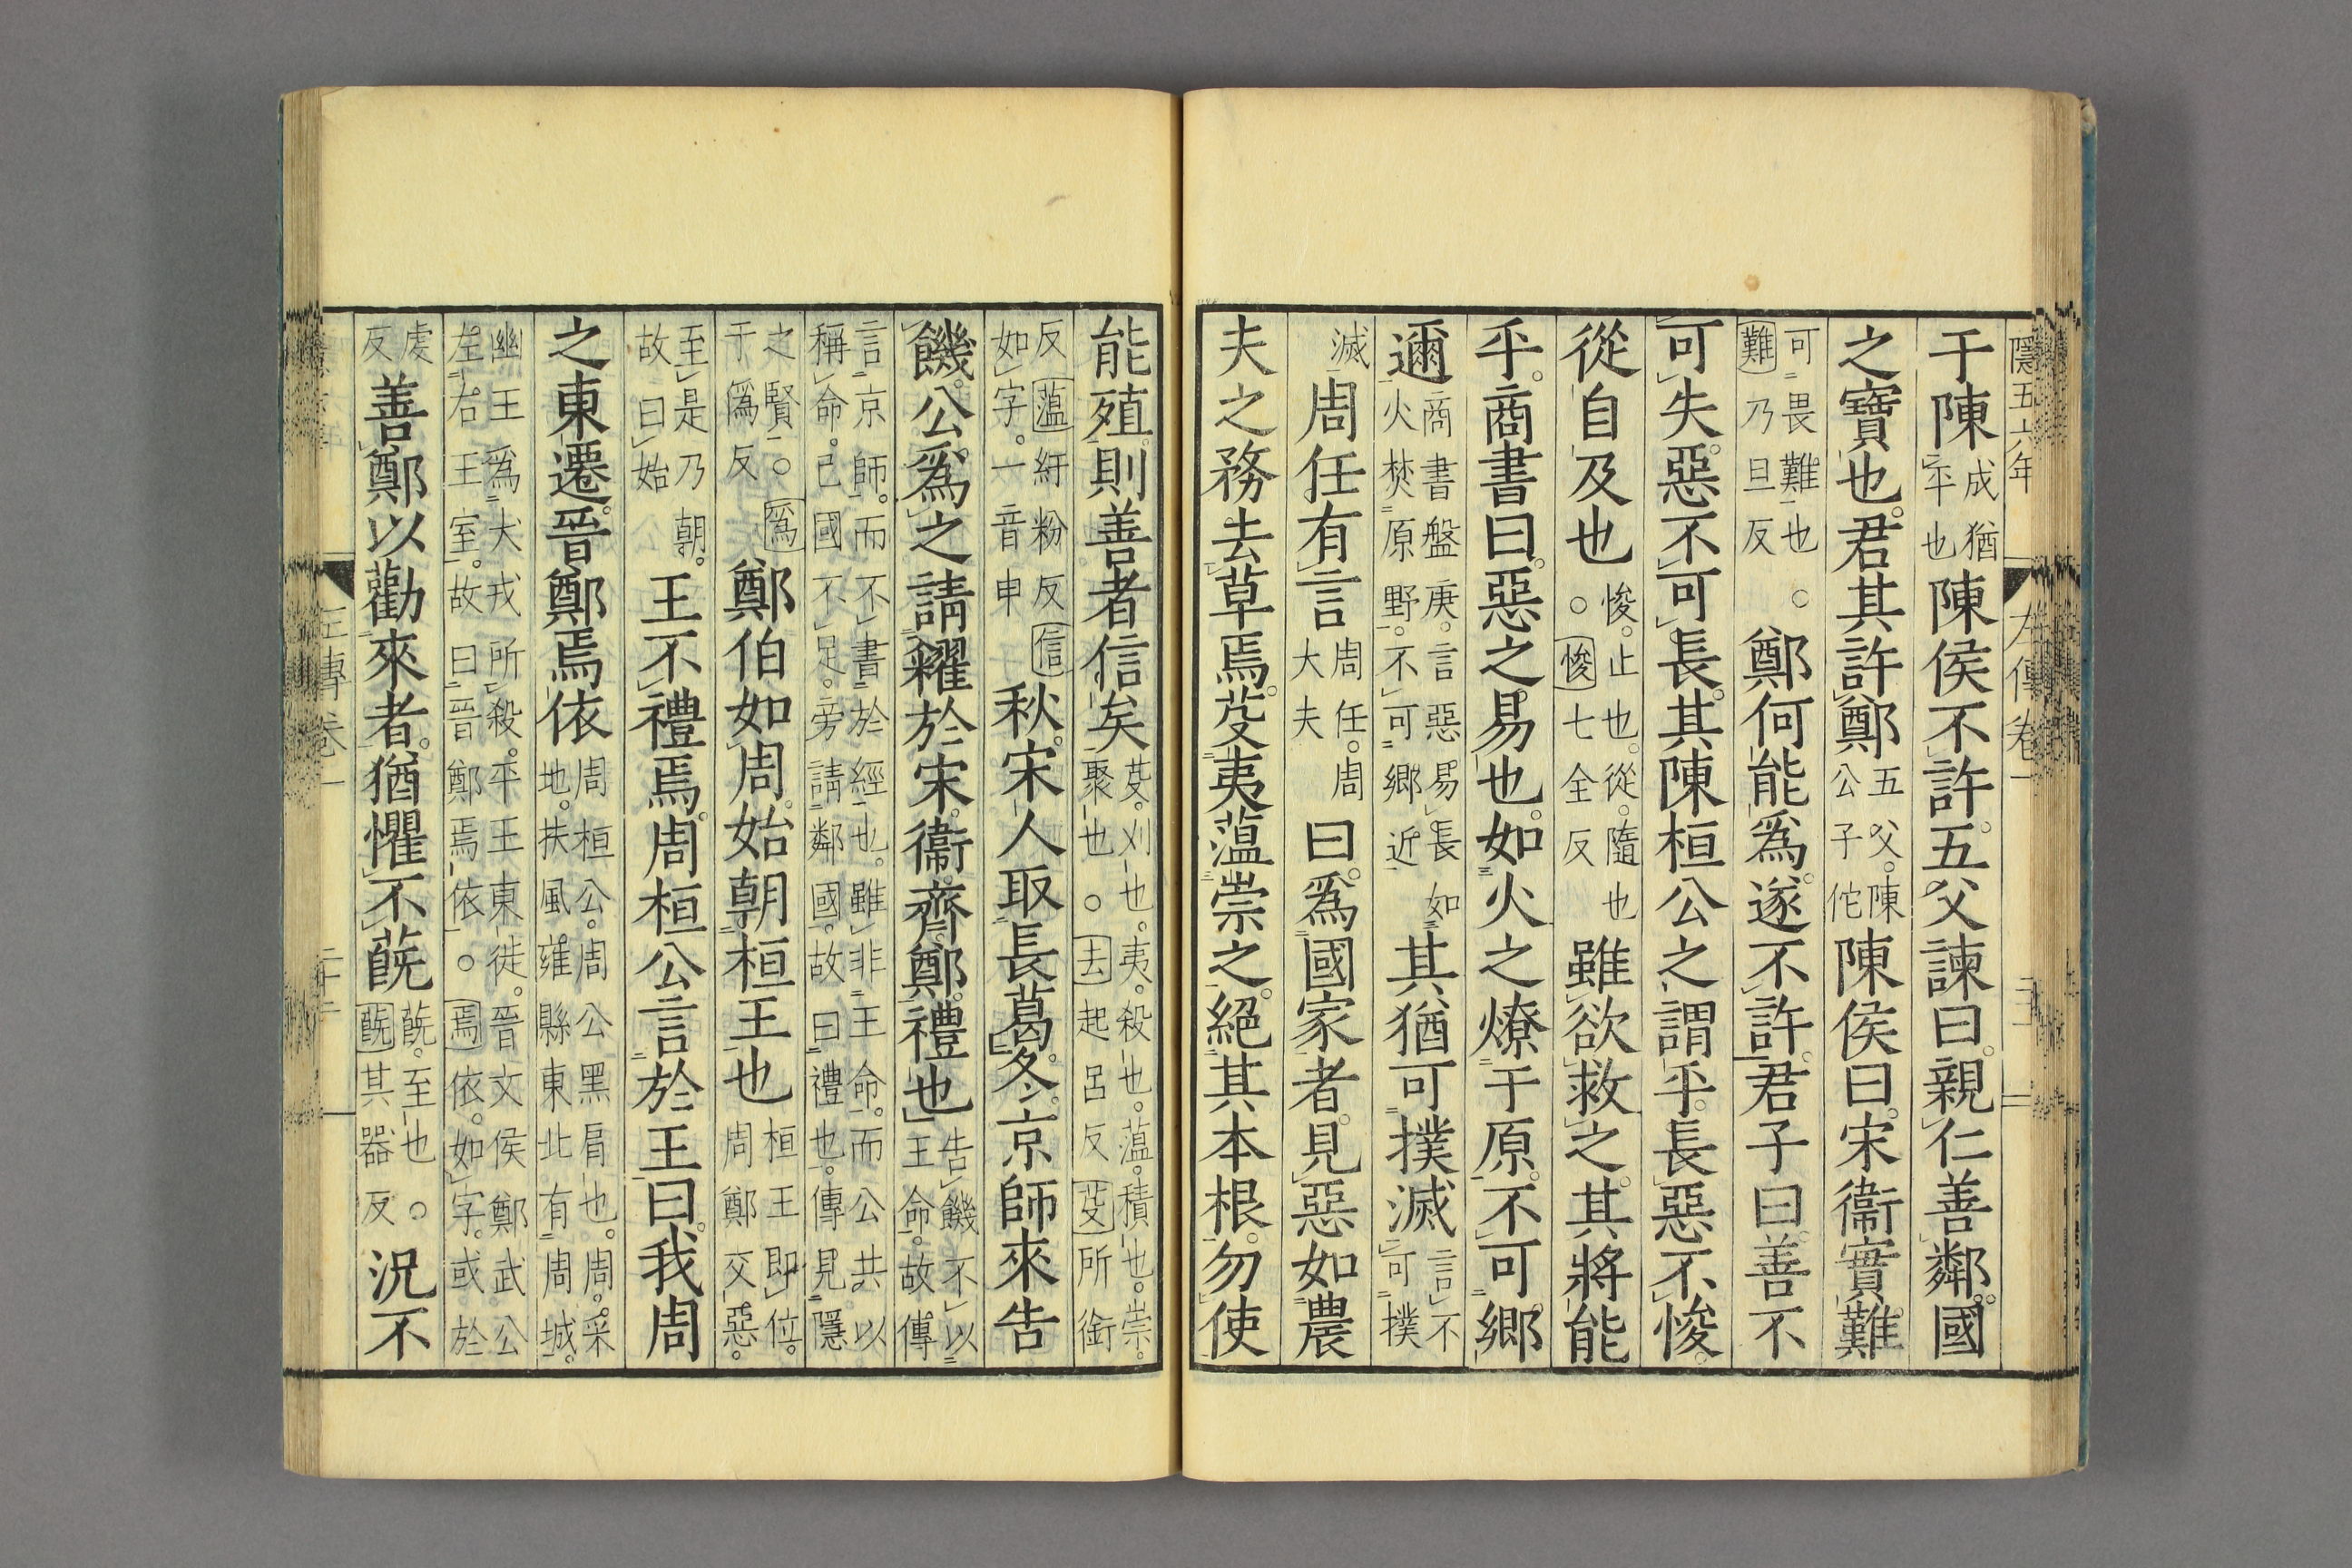 隱五六年 左傳卷一
于陳成猶平也陳侯不許。五父諫曰。親仁善鄰。國
之寶也。君其許鄭五父。陳公子佗陳侯曰。宋衞實難。
可畏難也○難乃旦反鄭何能爲。遂不許。君子曰。善不
可失。惡不可長。其陳桓公之謂乎。長惡不悛。
從自及也悛。止也。從。隨也○悛七全反雖欲救之。其將能
乎。商書曰。惡之易也。如火之燎于原。不可鄉
邇商書盤庚。言惡易長如火焚原野。不可鄉近其猶可撲滅言不可撲
滅周任有言周任。周大夫曰。爲國家者。見惡如農
夫之務去草焉。芟夷蘊崇之。絕其本根。勿使
能殖。則善者信矣芟。刈也。夷。殺也。蘊。積也。崇。聚也○去起呂反芟所銜
反蘊紆粉反信如字。一音申秋。宋人取長葛。冬。京師來告
饑。公爲之請糴於宋。衞。齊。鄭。禮也告饑不以王命。故傳
言京師。而不書於經也。雖非王命。而公共以稱命。己國不足。旁請鄰國。故曰禮也。傳見隱
之賢○爲于爲反鄭伯如周。始朝桓王也桓王即位。周鄭交惡。
至是乃朝。故曰始王不禮焉。周桓公言於王曰。我周
之東遷。晉鄭焉依周桓公。周公黑肩也。周。采地。扶風。雍縣東北有周城。
幽王爲犬戎所殺。平王東徙。晉文侯鄭武公左右王室。故曰晉鄭焉依○焉依。如字。或於
虔反善鄭以勸來者。猶懼不蔇蔇。至也○蔇其器反況不